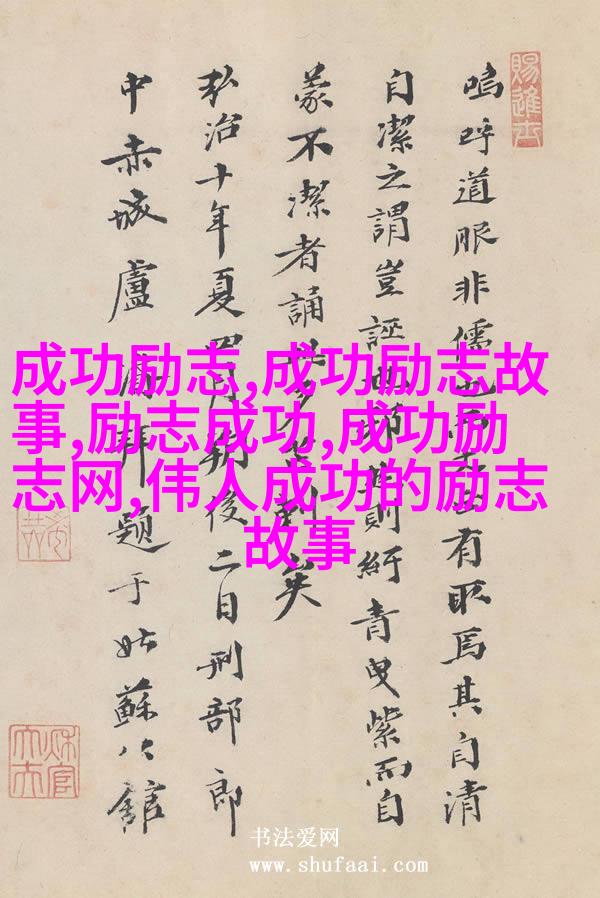 賜進士
嗚呼道服非儒有取焉其自清
自潔之謂豈誣則紆青曳紫而自
蒙不潔者誦矣
弘治十年夏四月朔後二日刑部郎
中赤城盧拜題于姑蘇公館
成功励志,成功励志故
事,励志成功,成功励
志网,伟人成功的励志
故事
书法爱网
www.shufaai.com